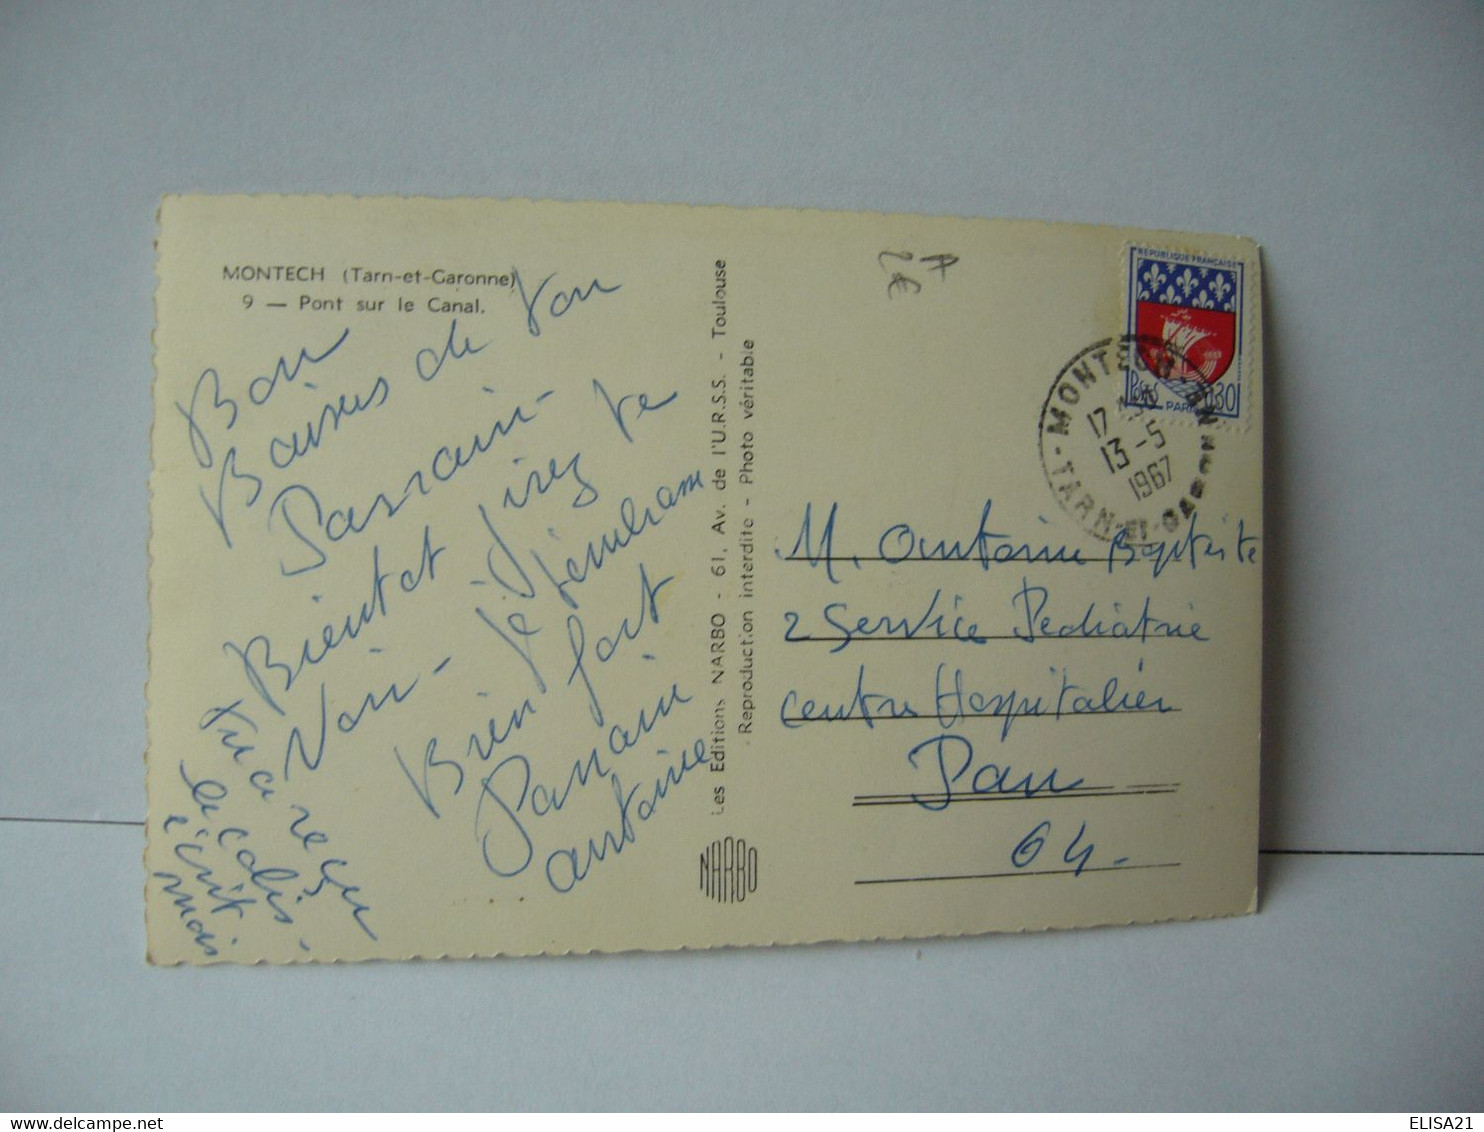 MONTECH (Tarn-et-Garonne)
9 — Pont sur le Canal.
Bon
Baisers de ton
Parrain -
Bientot j'irez te
Voir - je t'embrasse
Bien fort
Parrain
antoine
tu a reçu
le colis -
écrit
moi
Les Editions NARBO - 61, Av. de l'U.R.S.S. - Toulouse
Reproduction interdite - Photo véritable
NARBO
A
2€
REPUBLIQUE FRANÇAISE
Postes
0,30
PARIS
MONTECH
17
13 -5
1967
TARN-ET-GARONNE
M. Baptiste
2 Service Pediatrie
centre Hospitalier
Pau
64.
ELISA21